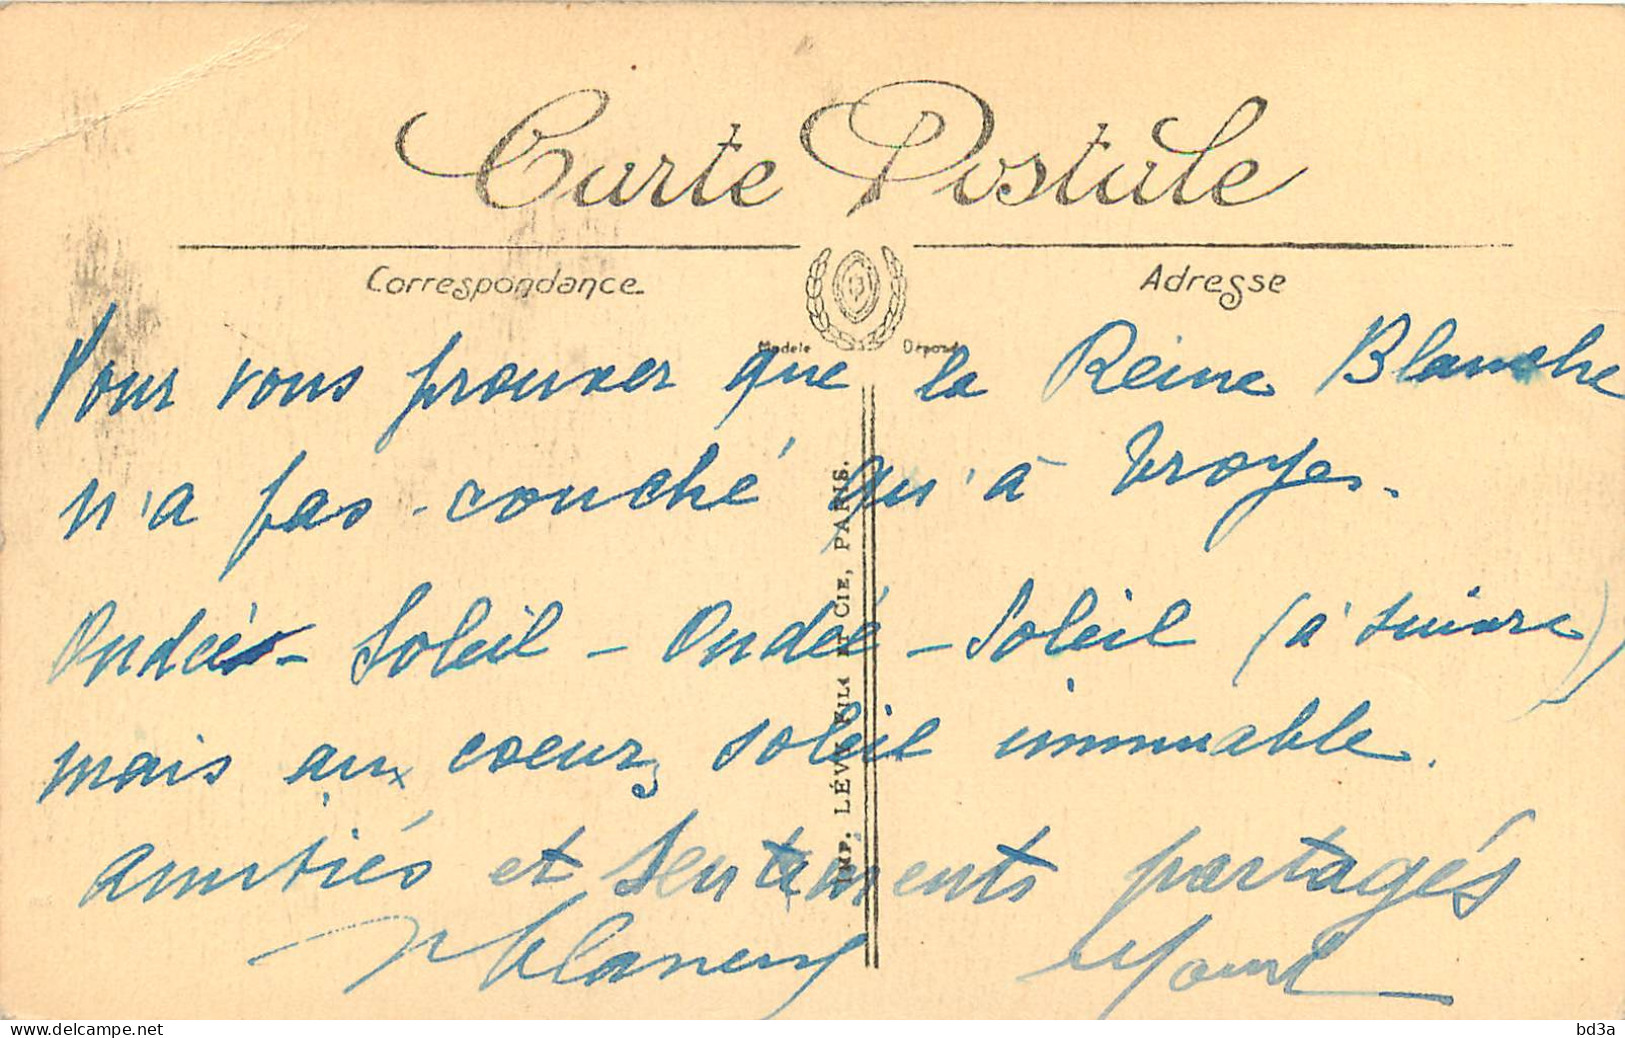 Carte Postale
Correspondance
Adresse
Modèle Déposé
Pour vous prouver que la Reine Blanche
n'a pas couché qu'à Troyes.
Ondée - Soleil - Ondée - Soleil (à suivre)
mais au cœur, soleil immuable.
amitiés et sentiments partagés
IMP. LÉVY FILS ET CIE, PARIS.
www.delcampe.net
bd3a